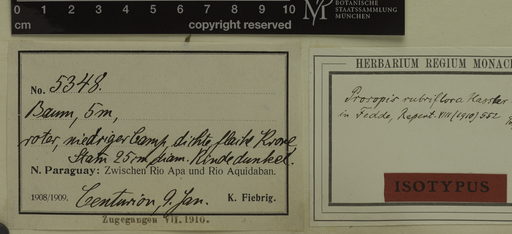 0 1 2 3 4 5 6 7 8 9 10
cm copyright reserved
BOTANISCHE
STAATSSAMMLUNG
MÜNCHEN
No. 5348.
Baum, 5 m,
roter, niedriger Camp, dichte, flache Krone,
Stam 25 cm diam. Rinde dunkel.
N. Paraguay: Zwischen Rio Apa und Rio Aquidaban.
1908/1909. Centurion, 9. Jan. K. Fiebrig.
Zugegangen VII. 1910.
HERBARIUM REGIUM MONAC
Prosopis rubriflora Hassler
in Fedde, Repert. VIII (1910) 552
ISOTYPUS